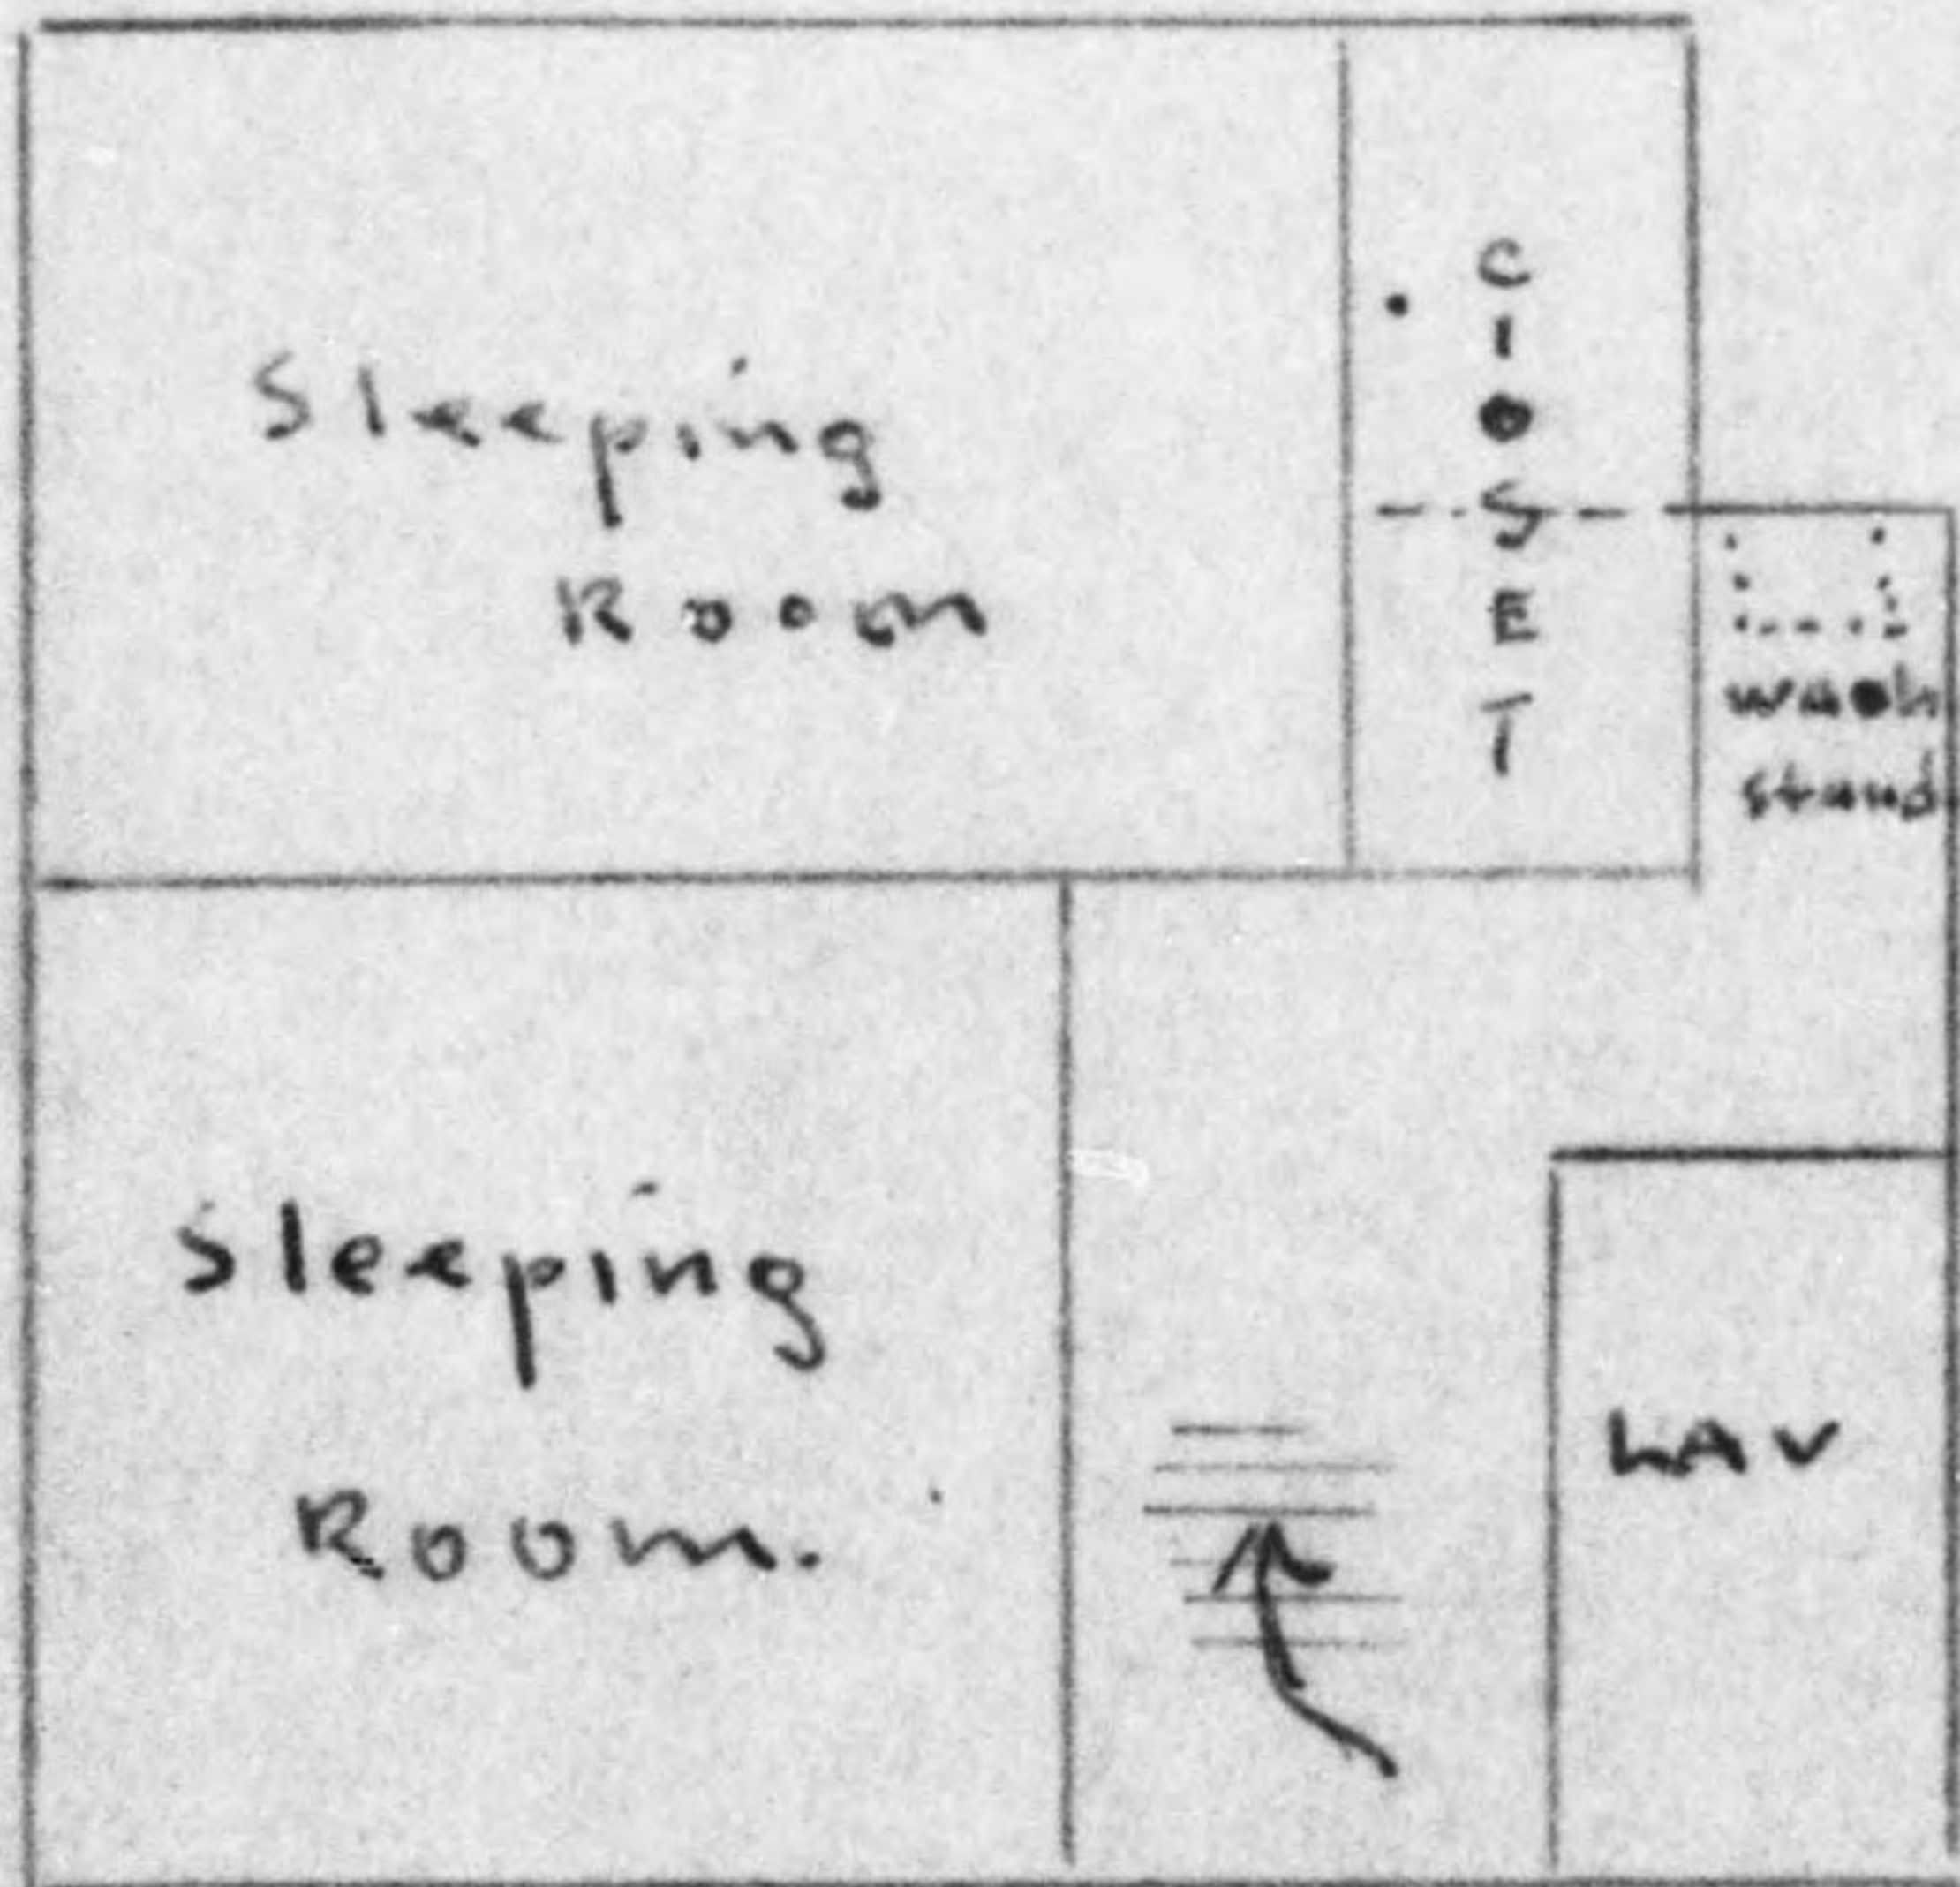 Sleeping
Room
CLOSET
wash
stand
Sleeping
Room.
LAV